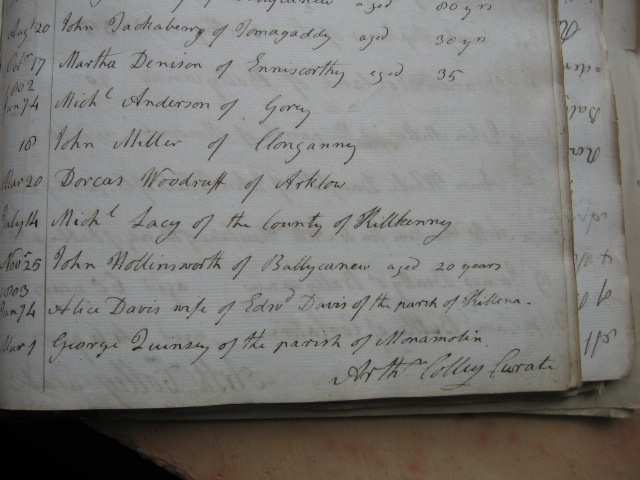 aged 80 yrs
Augt 20 John Jackaberry of Tomagaddy aged 30 yrs
Octr 17 Martha Denison of Enniscorthy aged 35
1802
Jany 4 Michl Anderson of Gorey
18 John Miller of Clonganny
Mar 20 Dorcas Woodruff of Arklow
July 14 Michl Lacy of the County of Killkenny
Novr 25 John Hollinsworth of Ballycanew aged 20 years
1803
Jany 4 Alice Davis wife of Edwd Davis of the parish of Killena.
Mar 1 George Quinsey of the parish of Monamolin.
Arthr Colley Curate